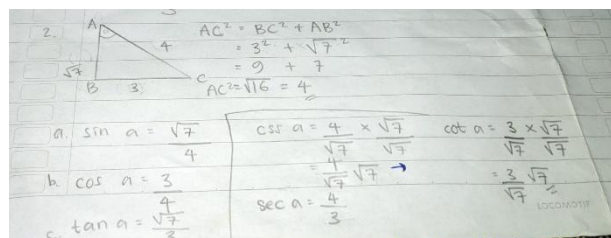 2.
A
4
√7
B 3 C
AC² = BC² + AB²
= 3² + √7²
= 9 + 7
AC² = √16 = 4
a. sin a = √7/4
b. cos a = 3/4
c. tan a = √7/3
css a = 4/√7 × √7/√7
= 4/√7 √7 →
sec a = 4/3
cot a = 3/√7 × √7/√7
= 3/√7 √7
LOCOMOTIF